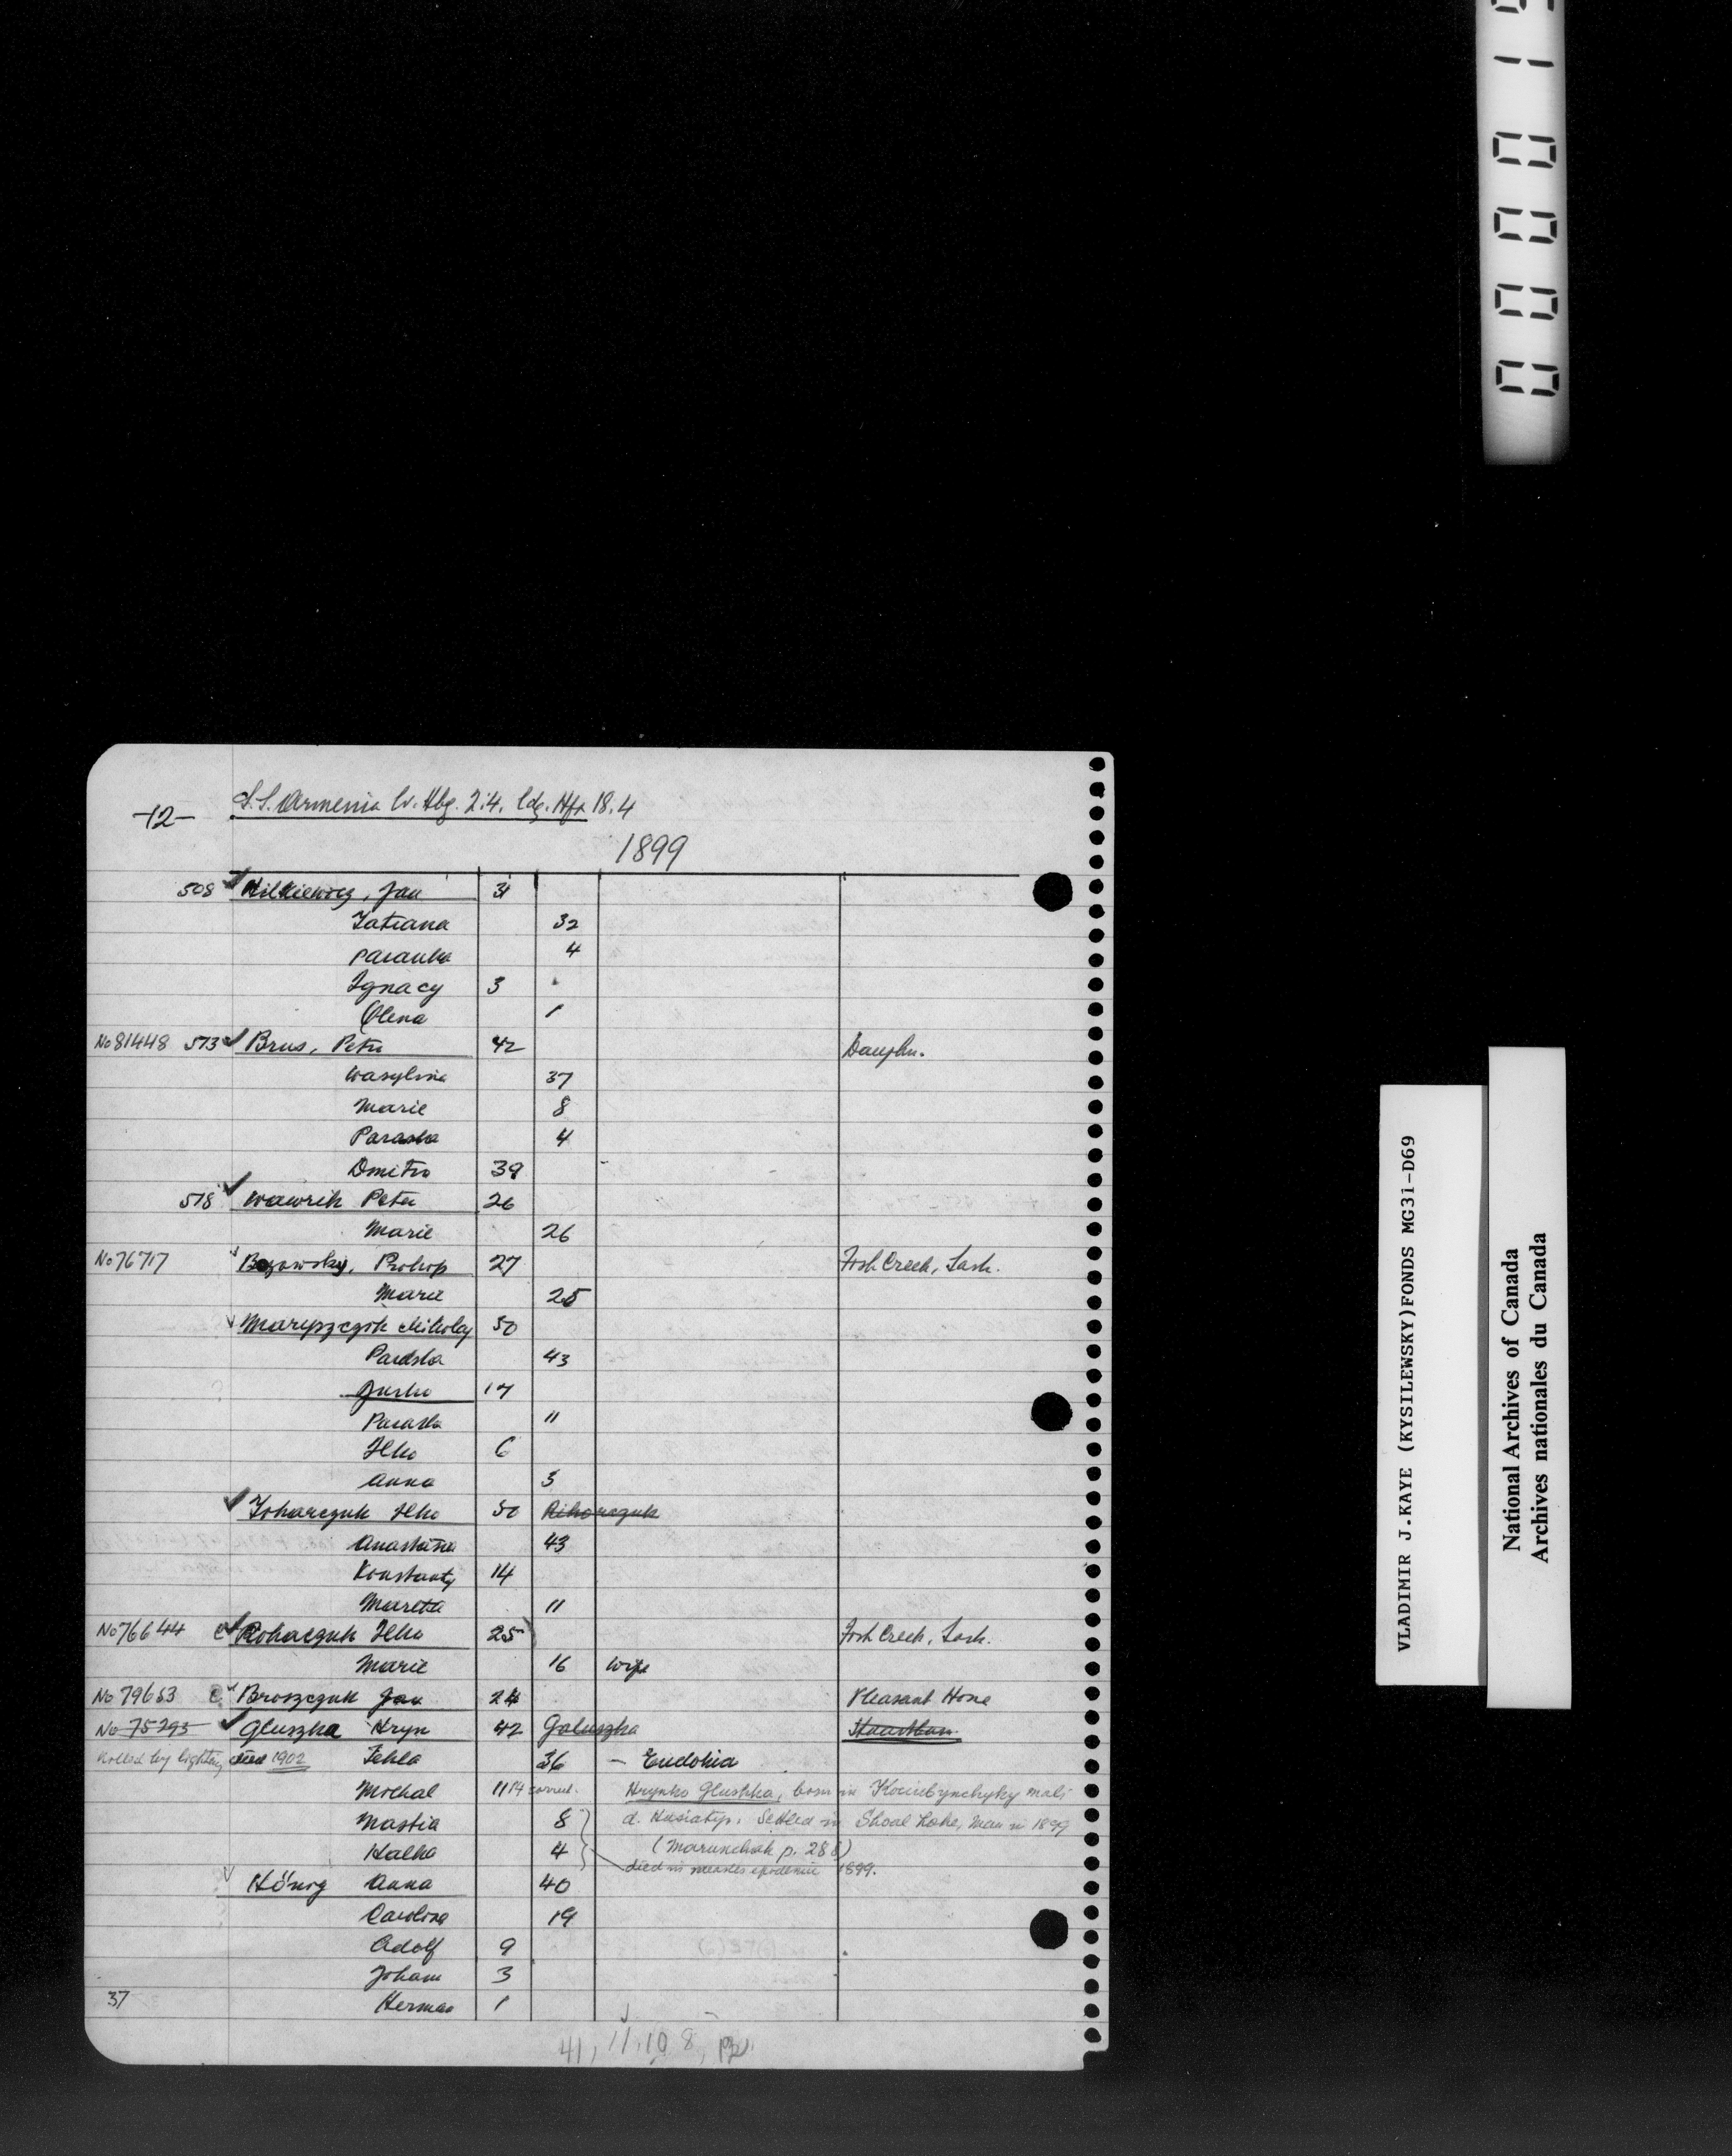 -12-
S.S. Armenia lv. Hbg. 2.4. ldg. Hfx 18.4
1899
508 Hilkiewicz, Jan 31
Tatiana 32
Paranka 4
Ignacy 3
Olena 1
No 81448 513 Brus, Petro 42 Dauphn.
Wasylina 37
Marie 8
Paraska 4
Dmitro 39
518 Wawrik Peter 26
Marie 26
No 76717 Prokop 27 Fish Creek, Sask.
Marie 25
Mikolaj 50
Paraska 43
Jurko 17
Paraska 11
Ilko 6
Anna 3
Toharczuk Ilko 50 Riharczuk
Anastasia 43
Konstanty 14
Maretta 11
No 76644 c Rohaczuk Ilko 25 Fish Creek, Sask.
Marie 16 wife
No 79653 c Broszczuk Jan 24 Pleasant Home
No 75293 Gluszka Hryn 42 Galuszka Stuartburn
Killed by lightning died 1902 Tekla 36 - Eudokia
Michal 11 14 correct. Hrynko Glushka, born in Kociubynchyky mali
Nastia 8 d. Husiatyn. Settled in Shoal Lake, Man in 1899
Halka 4 (Marunchak p. 288)
died in measles epidemic 1899.
König Anna 40
Carolina 19
Adolf 9
Johann 3
37 Herman 1
41, 11, 10, 8,
VLADIMIR J.KAYE (KYSILEWSKY)FONDS MG31-D69
National Archives of Canada
Archives nationales du Canada